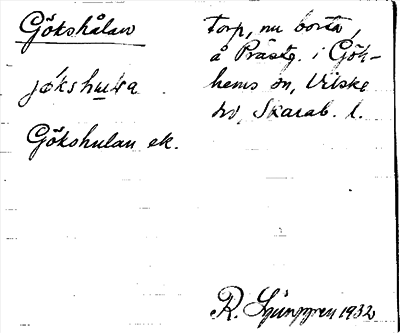 Gökshålan
jǿkshula
Gökshulan ek.
torp, nu borta,
å Prästg. i Gök-
hems sn, Vilske
hd, Skarab. l.
R. Ljunggren 1932